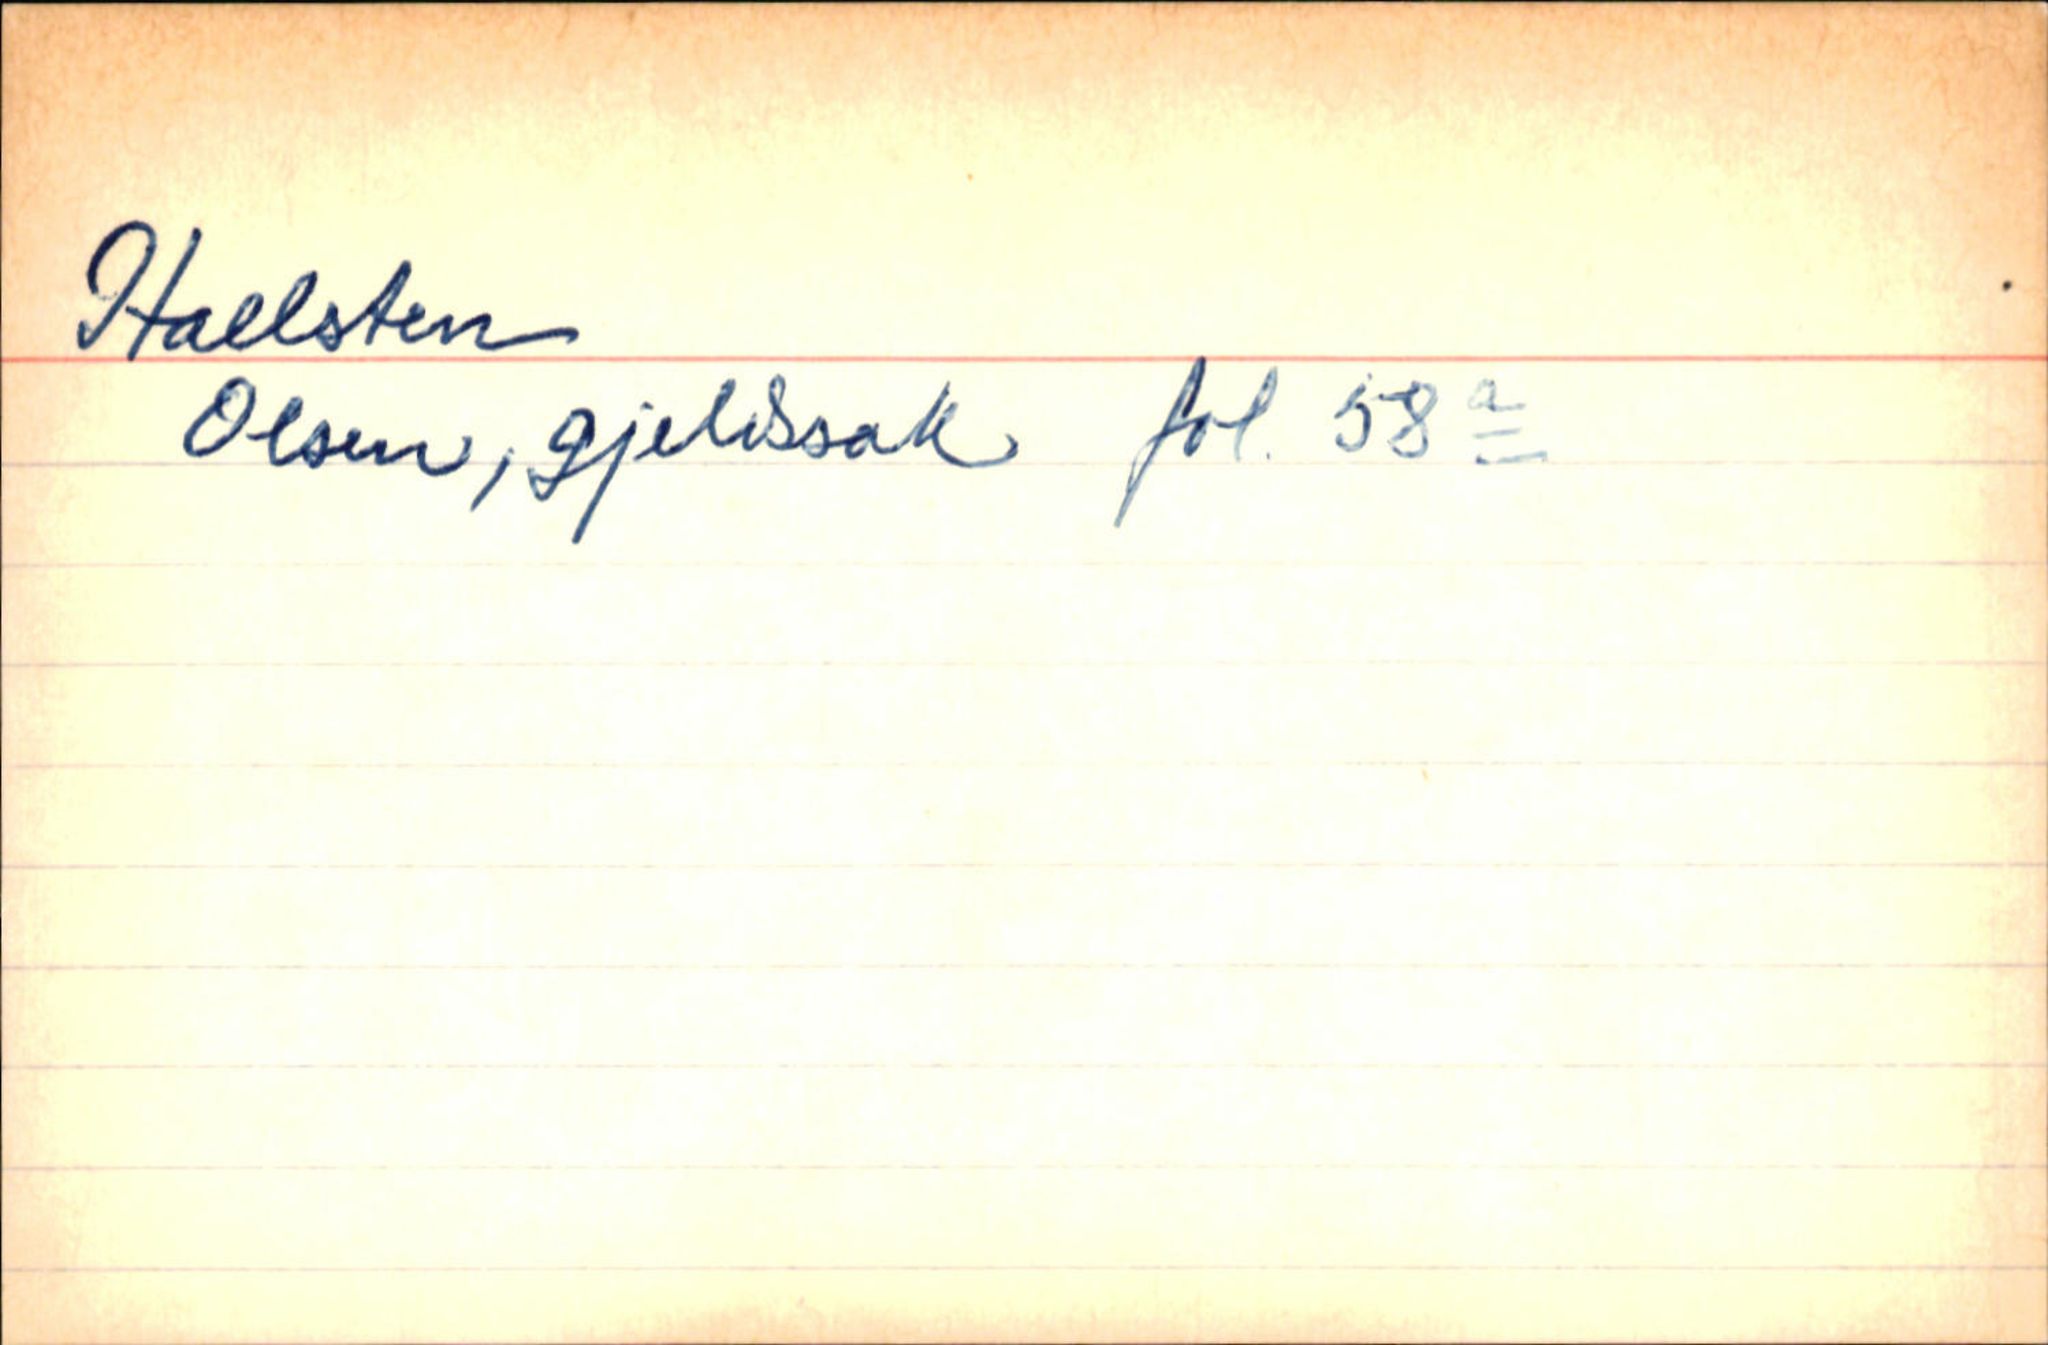 Hallsten
Olsen, gjeldssak fol. 58a